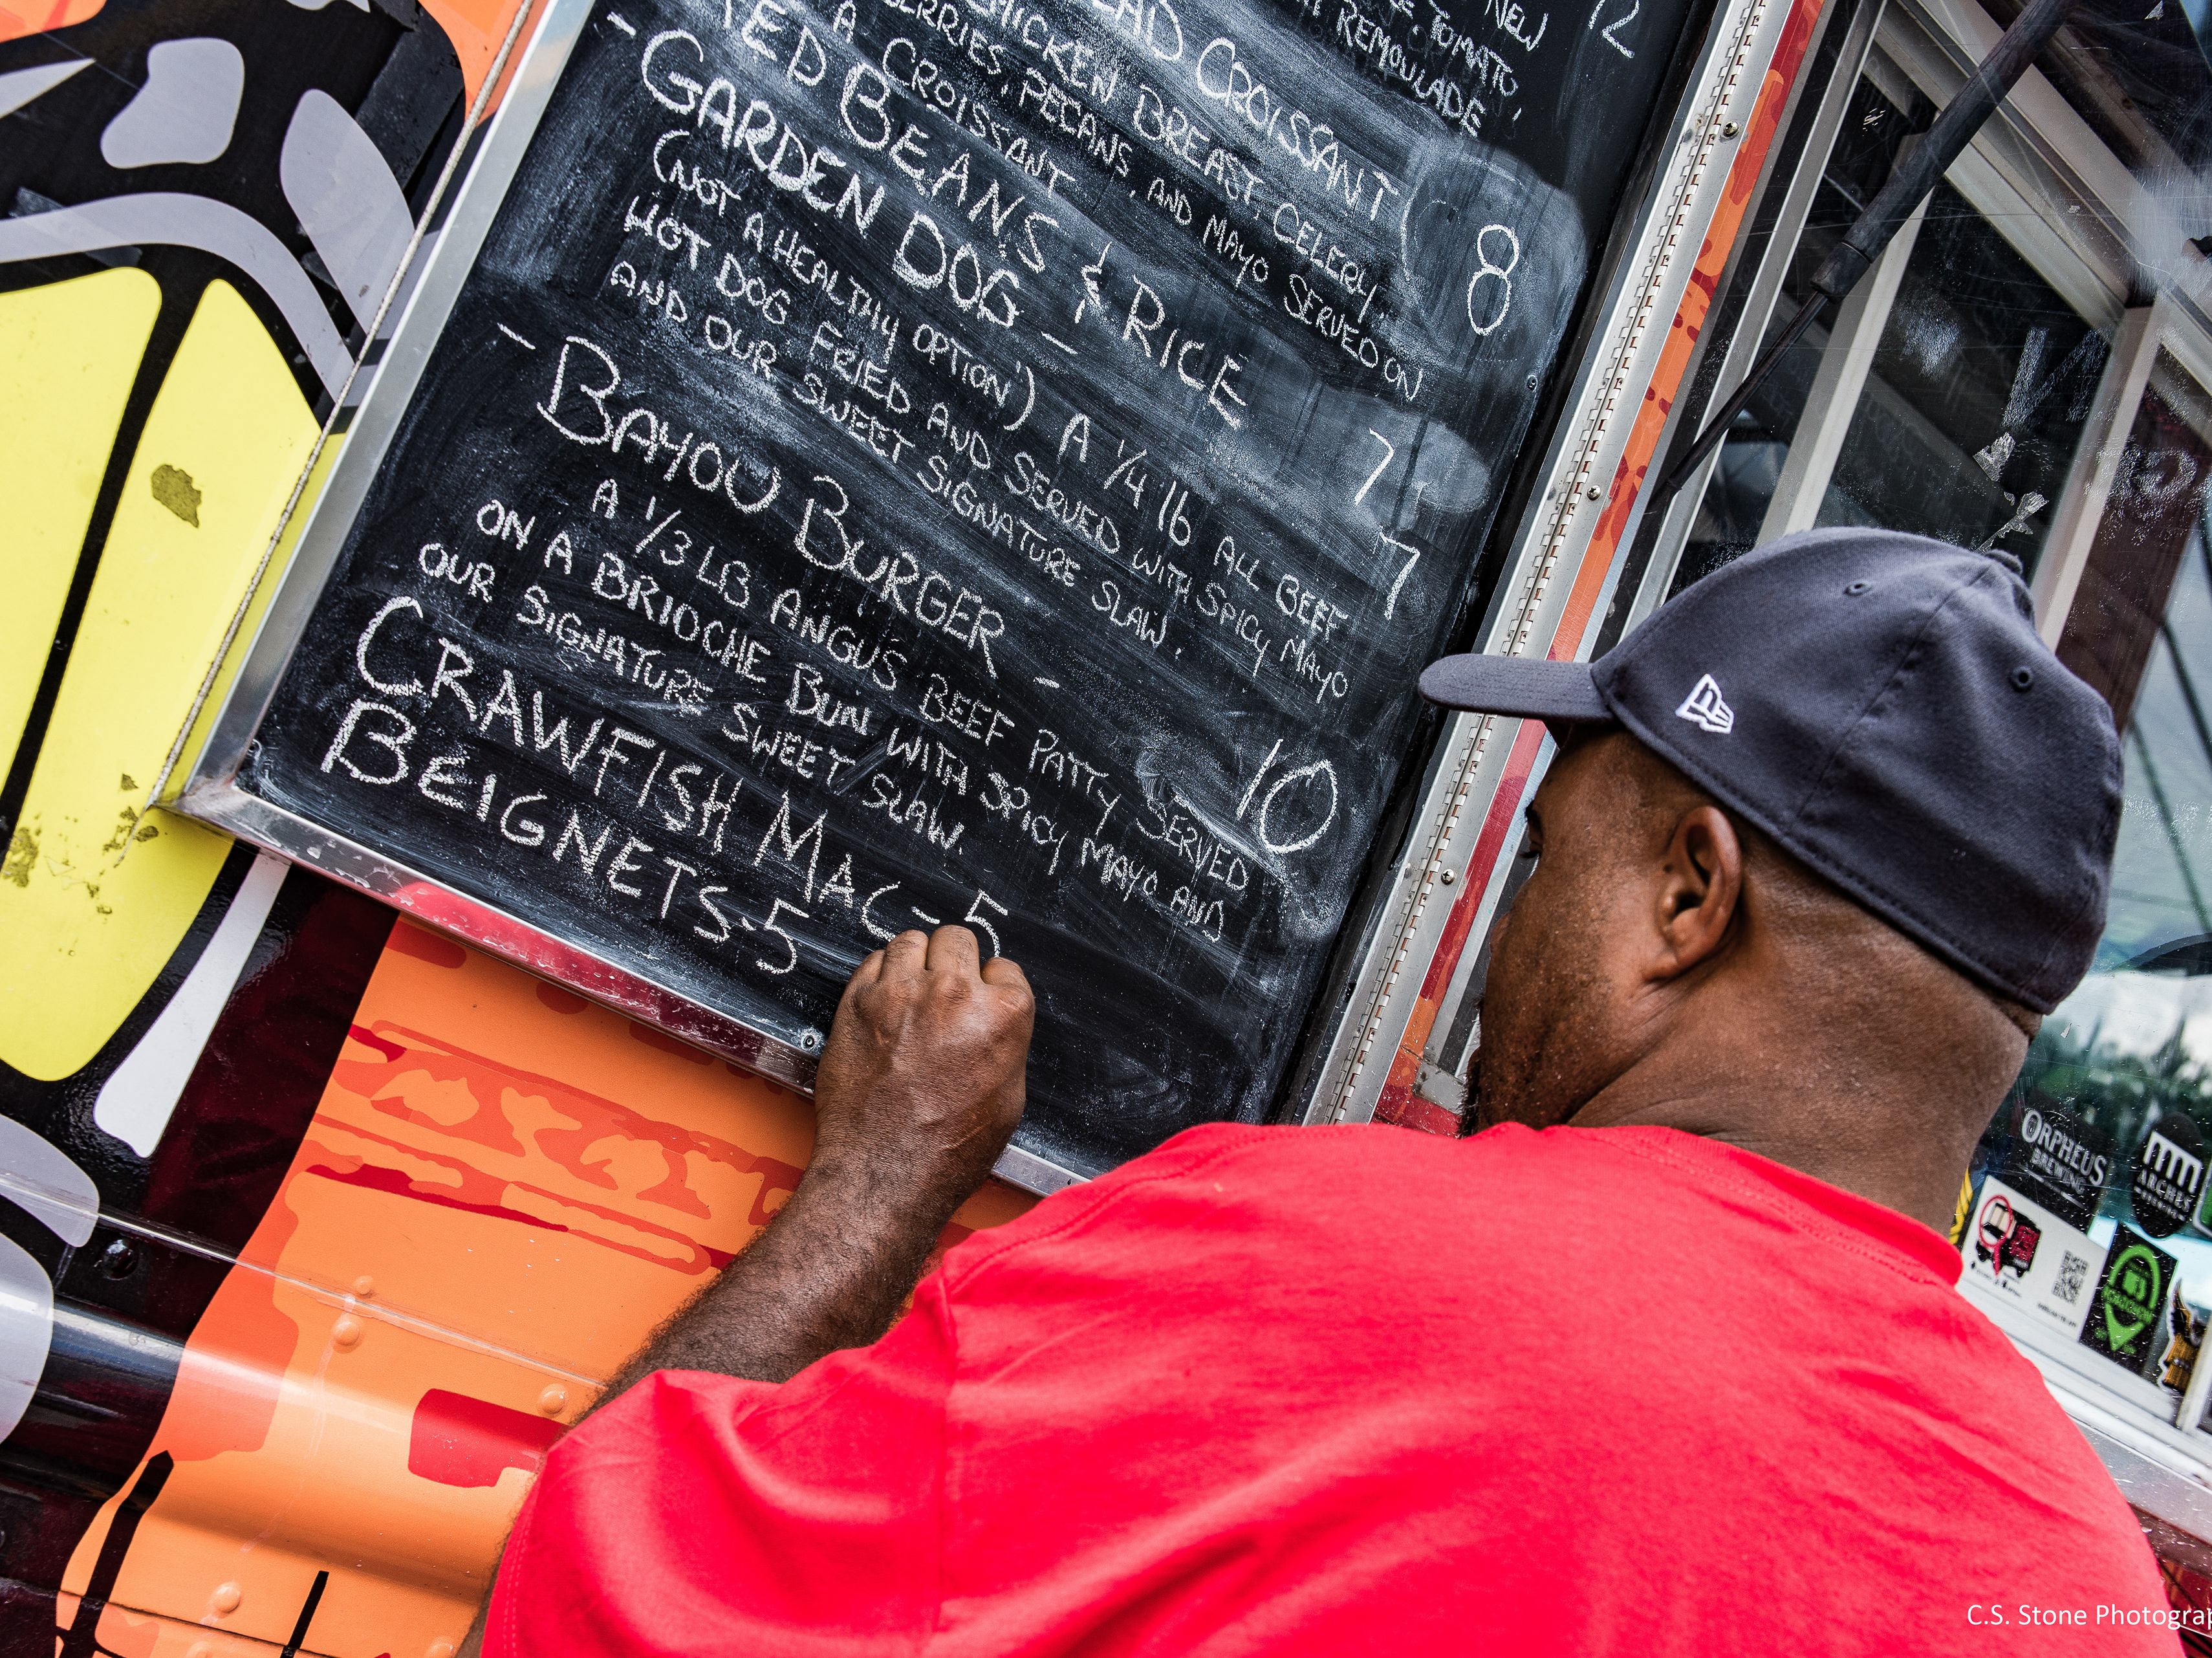 NEW 12
TOMATO,
REMOULADE
CROISSANT 8
CHICKEN BREAST, CELERY,
PECANS, AND MAYO SERVED ON
A CROISSANT
RED BEANS & RICE 7
- GARDEN DOG - 7
(NOT A HEALTHY OPTION) A 1/4 lb ALL BEEF
HOT DOG FRIED AND SERVED WITH SPICY MAYO
AND OUR SWEET SIGNATURE SLAW.
- BAYOU BURGER - 10
A 1/3 LB ANGUS BEEF PATTY SERVED
ON A BRIOCHE BUN WITH SPICY MAYO AND
OUR SIGNATURE SWEET SLAW.
CRAWFISH MAC - 5
BEIGNETS - 5
ORPHEUS
BREWING
ARCHES
C.S. Stone